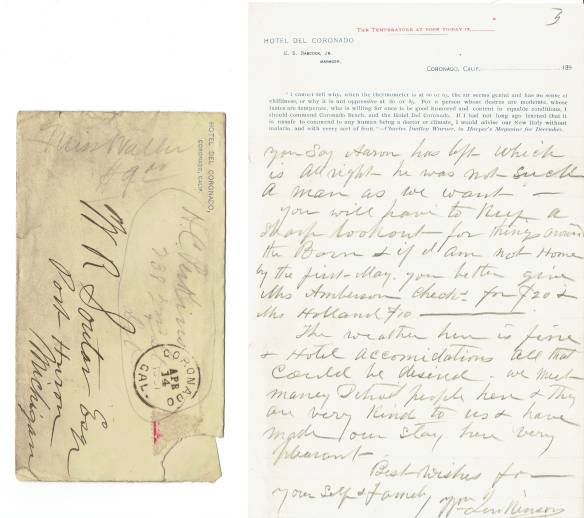 HOTEL DEL CORONADO,
CORONADO, CAL.
W R Soutar Esqr
Port Huron
Michigan
CORONADO
APR
14
CAL.
3
THE TEMPERATURE AT NOON TO-DAY IS
HOTEL DEL CORONADO
E. S. BABCOCK, JR.
MANAGER.
CORONADO, CALIF. 189
"I cannot tell why, when the thermometer is at 60 or 65, the air seems genial and has no sense of
chilliness, or why it is not oppressive at 80 or 85. For a person whose desires are moderate, whose
tastes are temperate, who is willing for once to be good humored and content in equable conditions, I
should commend Coronado Beach, and the Hotel Del Coronado, if I had not long ago learned that it
is unsafe to commend to any human being a doctor or climate. I would advise our New Italy without
malaria, and with every sort of fruit."—Charles Dudley Warner, in Harper's Magazine for December.
you say Aaron has left which
is all right he was not such
a man as we want —
you will have to keep a
sharp lookout for things around
the Barn & if I am not Home
by the first May. you better give
Mrs Amberson check for $20 &
Mrs Holland $10
The weather here is fine
& Hotel accomidations all that
could be desired. we meet
many Detroit people here & they
are very kind to us & have
made our stay here very
pleasant
Best Wishes for
your self & Family